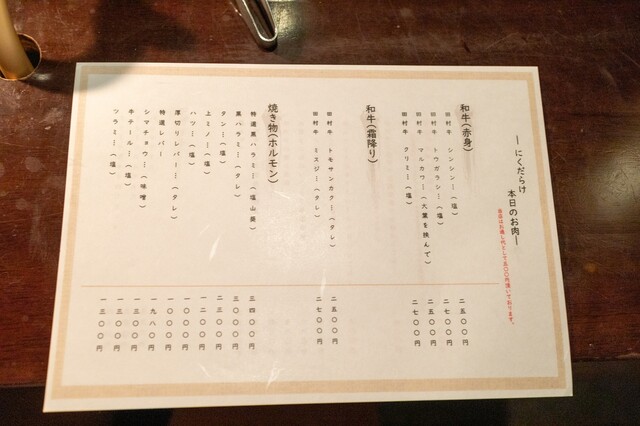 ―にくだらけ 本日のお肉―
当店はお通し代として五〇〇円頂いております。
和牛(赤身)
田村牛 シンシン…(塩) 二五〇〇円
田村牛 トウガラシ…(塩) 二七〇〇円
田村牛 マルカワ…(大葉を挟んで) 二五〇〇円
田村牛 クリミ…(塩) 二七〇〇円
和牛(霜降り)
田村牛 トモサンカク…(タレ) 二五〇〇円
田村牛 ミスジ…(タレ) 二七〇〇円
焼き物(ホルモン)
特選黒ハラミ…(塩山葵) 三四〇〇円
黒ハラミ…(タレ) 三〇〇〇円
タン…(塩) 二三〇〇円
上ミノ…(塩) 一二〇〇円
ハツ…(塩) 一〇〇〇円
厚切りレバー…(タレ) 一〇〇〇円
特選レバー 一九八〇円
シマチョウ…(味噌) 一三〇〇円
牛テール…(塩) 一三〇〇円
ツラミ…(塩) 一三〇〇円